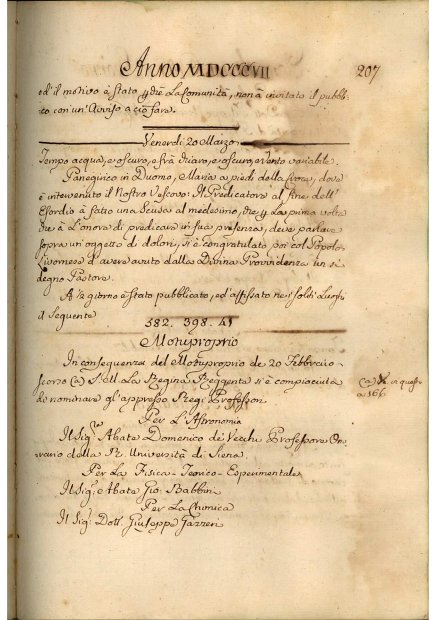 Anno MDCCCVII 207
ed' il motivo è stato p che La Comunità, non à invitato il pubbli-
co con un' Avviso a ciò fare.
Venerdì 20 Marzo
Tempo acqua, e oscuro, e frà chiaro, e oscuro, e vento variabile.
Panegirico in Duomo, Maria a piedi della croce, dove
è intervenuto il Nostro Vescovo: Il Predicatore al fine dell'
Esordio à fatto una Scusa al medesimo, che p La prima volta
che à L'onore di predicare in sua presenza, deve parlare
sopra un' oggetto di dolori, si è congratulato poi col Popolo
Livornese d'avere avuto dalla Divina Provvidenza un si
degno Pastore.
A ½ giorno è stato pubblicato, ed' affissato ne' soliti Luoghi
il seguente
582. 398. A1
Motuproprio
In consequenza del Motuproprio de 20 Febbraio
scorso (a) S. M. La Regina Reggente si è compiaciuta
di nominare gl'appresso Regi Professori
(a) in questo
a 166
Per L'Astronomia
Il Sigre Abate Domenico de' Vecchi Professore Ono-
rario della R. Università di Siena
Per La Fisica-Teorico-Esperimentale
Il Sigre Abate Gio. Babbini
Per La Chimica
Il Sigre Dott. Giuseppe Gazzeri